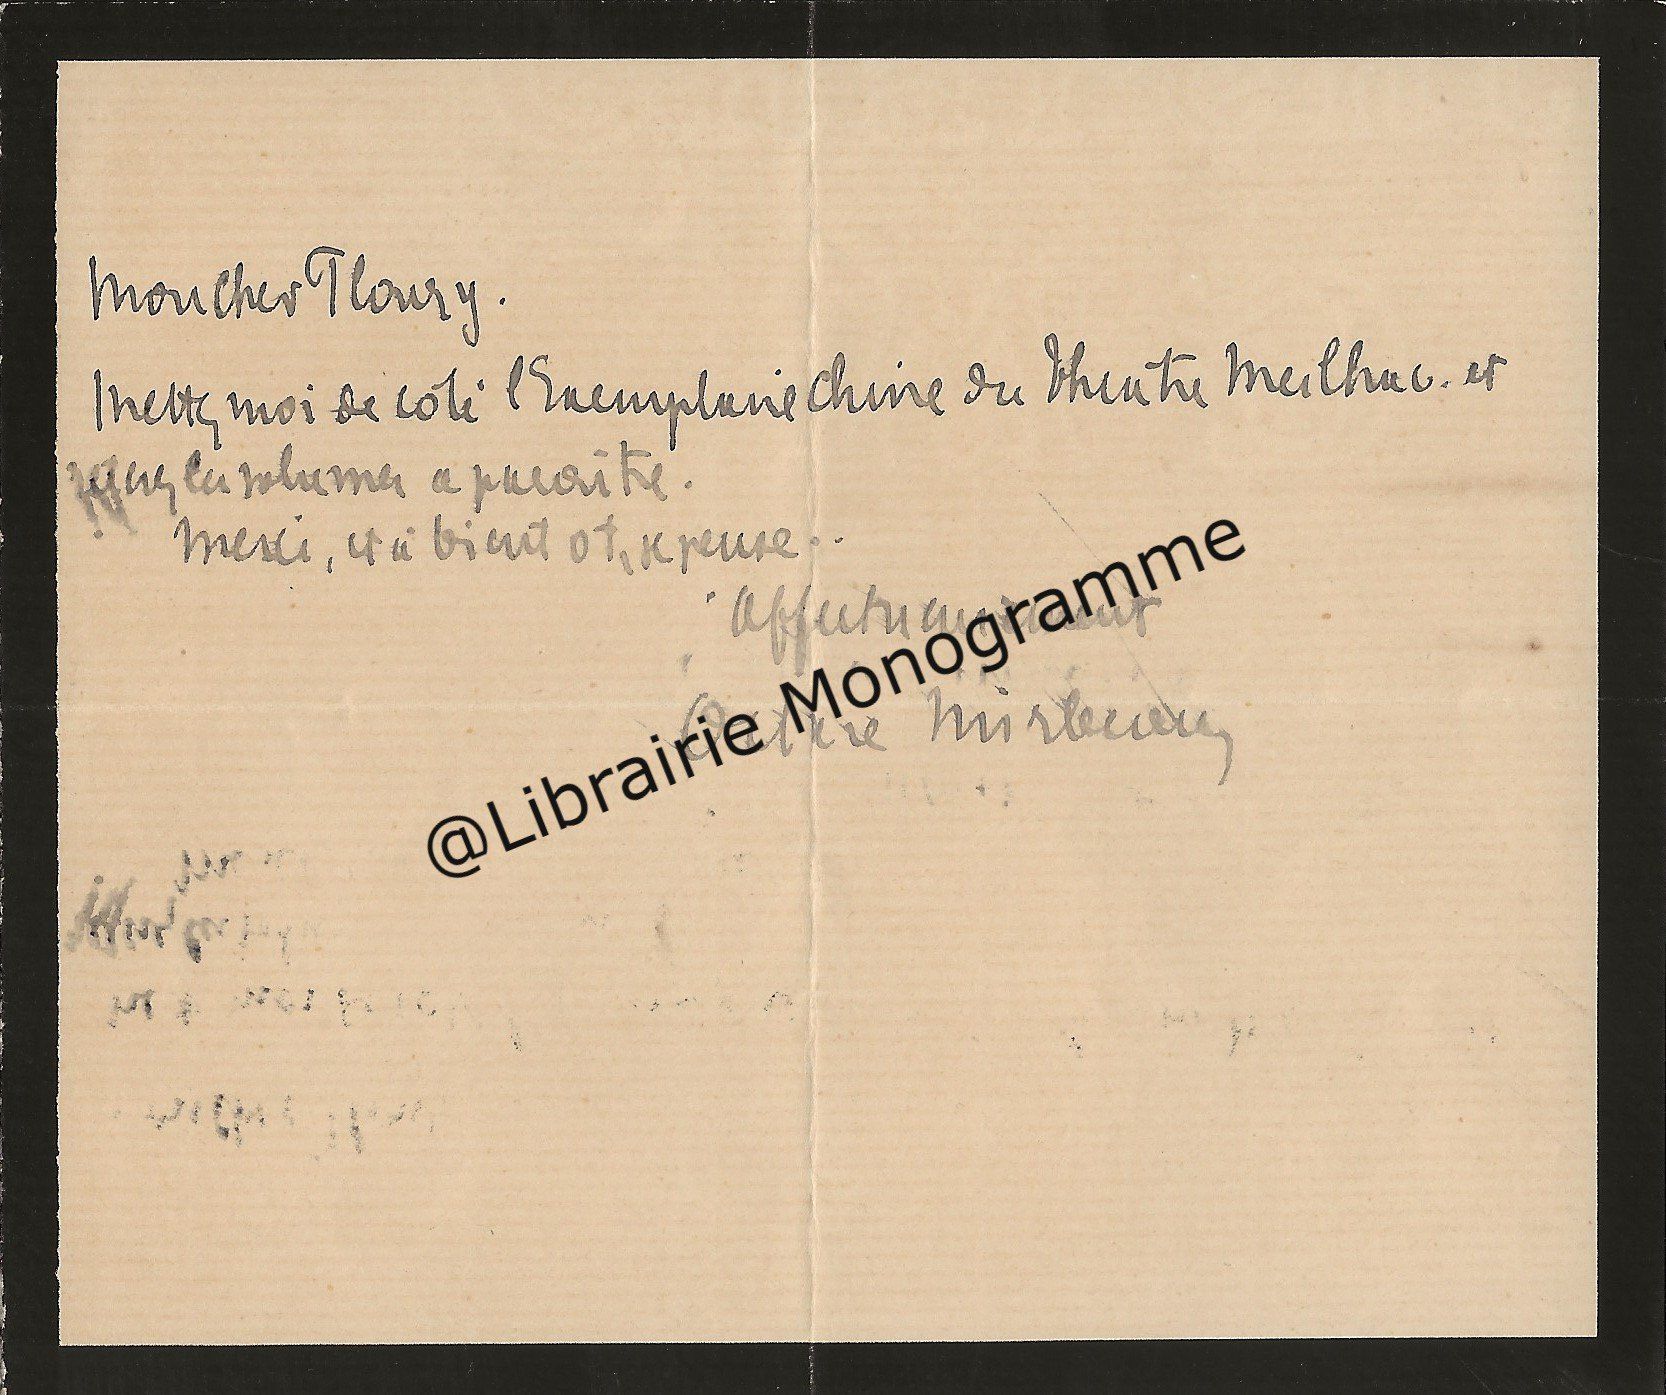 Mon cher Floury.
Mettez moi de coté l'Exemplaire Chine du Théatre Meilhac. et
les volumes a paraître.
Merci, et à bientot, je pense..
Affectueusement
Octave Mirbeau
@Librairie Monogramme